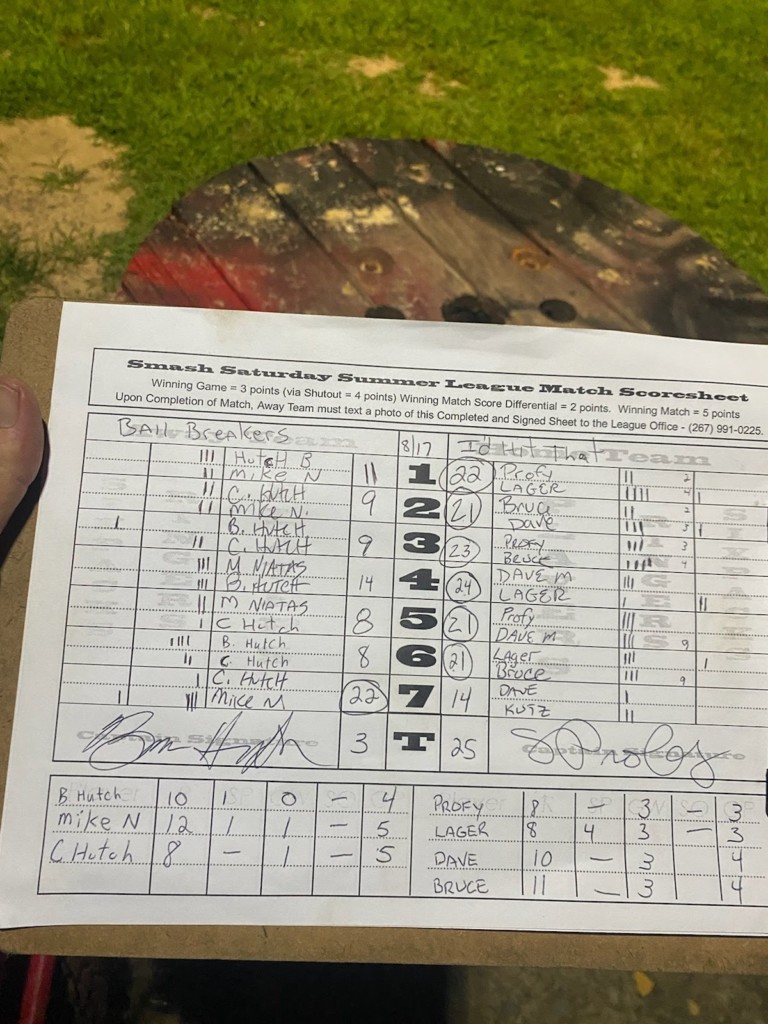 Smash Saturday Summer League Match Scoresheet
Winning Game = 3 points (via Shutout = 4 points) Winning Match Score Differential = 2 points. Winning Match = 5 points
Upon Completion of Match, Away Team must text a photo of this Completed and Signed Sheet to the League Office - (267) 991-0225.
Ball Breakers 8/17 I'd Hit That
HutcH B Profy 2
Mike N 11 1 22 LAGER 4
C. HUTCH Bruce 2
Mike N. 9 2 21 Dave 3
B. HUTCH PROFY 3
C. HUTCH 9 3 23 BRUCE 4
M NIATAS DAVE M
B. HUTCH 14 4 24 LAGER
M NIATAS Profy
C Hutch 8 5 21 DAVE M 9
B. Hutch Lager
C. Hutch 8 6 21 Bruce 9
C. HUTCH DAVE
Mike N 22 7 14
Captain Signature 3 T 25 Captain Signature
B Hutch 10 1 0 – 4 PROFY 8 – 3 – 3
Mike N 12 1 1 – 5 LAGER 8 4 3 – 3
C Hutch 8 – 1 – 5 DAVE 10 – 3 4
BRUCE 11 – 3 4